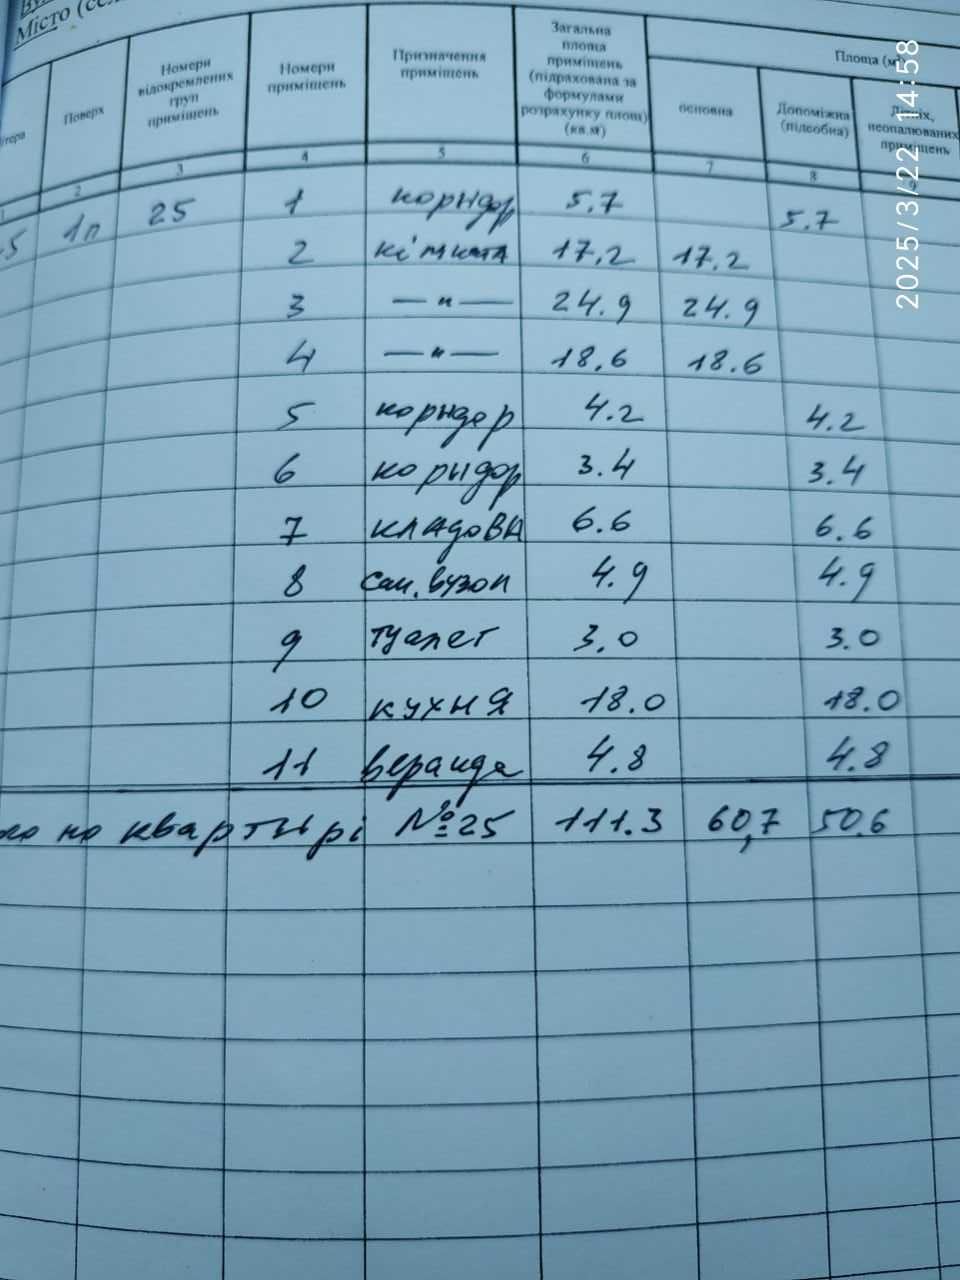 Місто (се
Поверх
Номери відокремлених груп приміщень
Номери приміщень
Призначення приміщень
Загальна площа приміщень (підрахована за формулами розрахунку площ) (кв.м)
Площа (м
основна
Допоміжна (підсобна)
неопалюваних приміщень
1 2 3 4 5 6 7 8 9
.5 1п 25 1 коридор 5.7 5.7
2 кімната 17.2 17.2
3 — " — 24.9 24.9
4 — " — 18.6 18.6
5 коридор 4.2 4.2
6 коридор 3.4 3.4
7 кладова 6.6 6.6
8 сан.вузол 4.9 4.9
9 туалет 3.0 3.0
10 кухня 18.0 18.0
11 веранда 4.8 4.8
по квартирі №25 111.3 60,7 50.6
2025/3/22 14:58